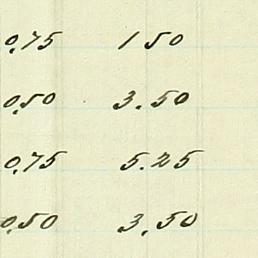 0.75 1 50
0.50 3.50
0.75 5.25
0.50 3.50